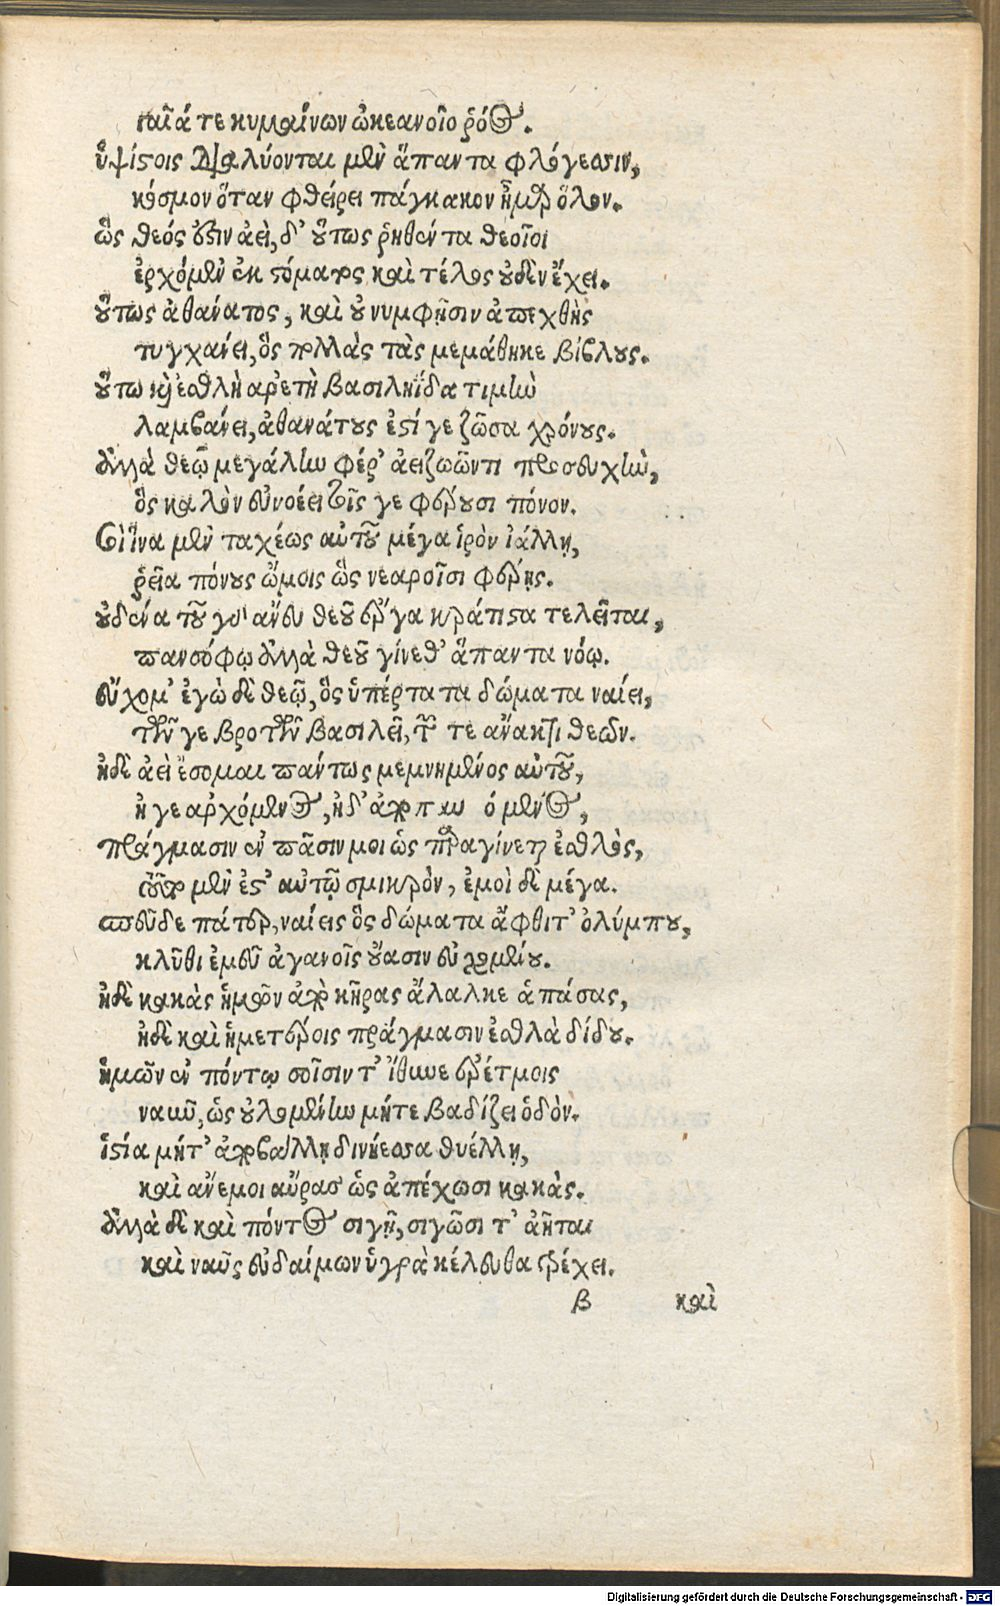 γαῖά τε κυμαίνων ὠκεανοῖο ῥόος.
ὑψίστοις διαλύονται μὲν ἅπαντα φλόγεσσιν,
κόσμον ὅταν φθείρει πάγκακον ἦμαρ ὅλον.
ὣς θεός ἐστιν ἀεὶ, δ' οὕτως ῥηθέντα θεοῖσι
ἐρχόμεν' ἐκ στόματος καὶ τέλος οὐδὲν ἔχει.
οὕτως ἀθανάτος, καὶ οὐ νυμφῇσιν ἀπεχθὴς
τυγχάνει, ὃς πολλὰς τὰς μεμάθηκε βίβλους.
οὕτω καὶ ἐσθλὴ ἀρετὴ βασιληΐδα τιμὴν
λαμβάνει, ἀθανάτους ἐστί γε ζῶσα χρόνους.
ἀλλὰ θεῷ μεγάλην φέρ' ἀειζωῶντι προσευχὴν,
ὃς καλὸν εὐνοέει τοῖς γε φέρουσι πόνον.
τοὶ ἵνα μὲν ταχέως αὐτοῦ μέγα ἱρὸν ἰάλλῃ,
ῥεῖα πόνους ὤμοις ὣς νεαροῖσι φέρῃς.
οὐδένα τοῦ γὰρ ἄνευ θεοῦ ἔργα κράτιστα τελεῖται,
πανσόφῳ ἀλλὰ θεοῦ γίνεθ' ἅπαντα νόῳ.
εὔχομ' ἐγὼ δὲ θεῷ, ὃς ὑπέρτατα δώματα ναίει,
τῶν γε βροτῶν βασιλεῖ, τῶν τε ἄνακτι θεῶν.
ἠδὲ ἀεὶ ἔσομαι πάντως μεμνημένος αὐτοῦ,
ἠ γε ἀρχόμενος, ἠδ' ὁμενος,
πράγμασιν ἐν πᾶσιν μοι ὡς παραγίνεται ἐσθλὸς,
τοῦτο μὲν ἔστ' αὐτῷ σμικρὸν, ἐμοὶ δὲ μέγα.
σπεῦδε πάτερ, ναίεις ὃς δώματα ἄφθιτ' ὀλύμπου,
κλῦθι ἐμεῦ ἀγανοῖς οὔασιν εὐχομένου.
ἠδὲ κακὰς ἡμῶν ἀπὸ κῆρας ἄλαλκε ἁπάσας,
ἠδὲ καὶ ἡμετέροις πράγμασιν ἐσθλὰ δίδου.
ἡμῶν ἐν πόντῳ σοῖσιν τ' ἴθυνε ἐρέτμοις
ναῦν, ὡς οὐλομένην μήτε βαδίζει ὁδὸν.
ἱστία μήτ' ἀποβάλλῃ δινήεσσα θυέλλη,
καὶ ἄνεμοι αὔρας ὡς ἀπέχωσι κακάς.
ἀλλὰ δὲ καὶ πόντος σιγῇ, σιγῶσι τ' ἀῆται
καὶ ναῦς εὐδαίμων ὑγρὰ κέλευθα τρέχει.
β καὶ
Digitalisierung gefördert durch die Deutsche Forschungsgemeinschaft - DFG